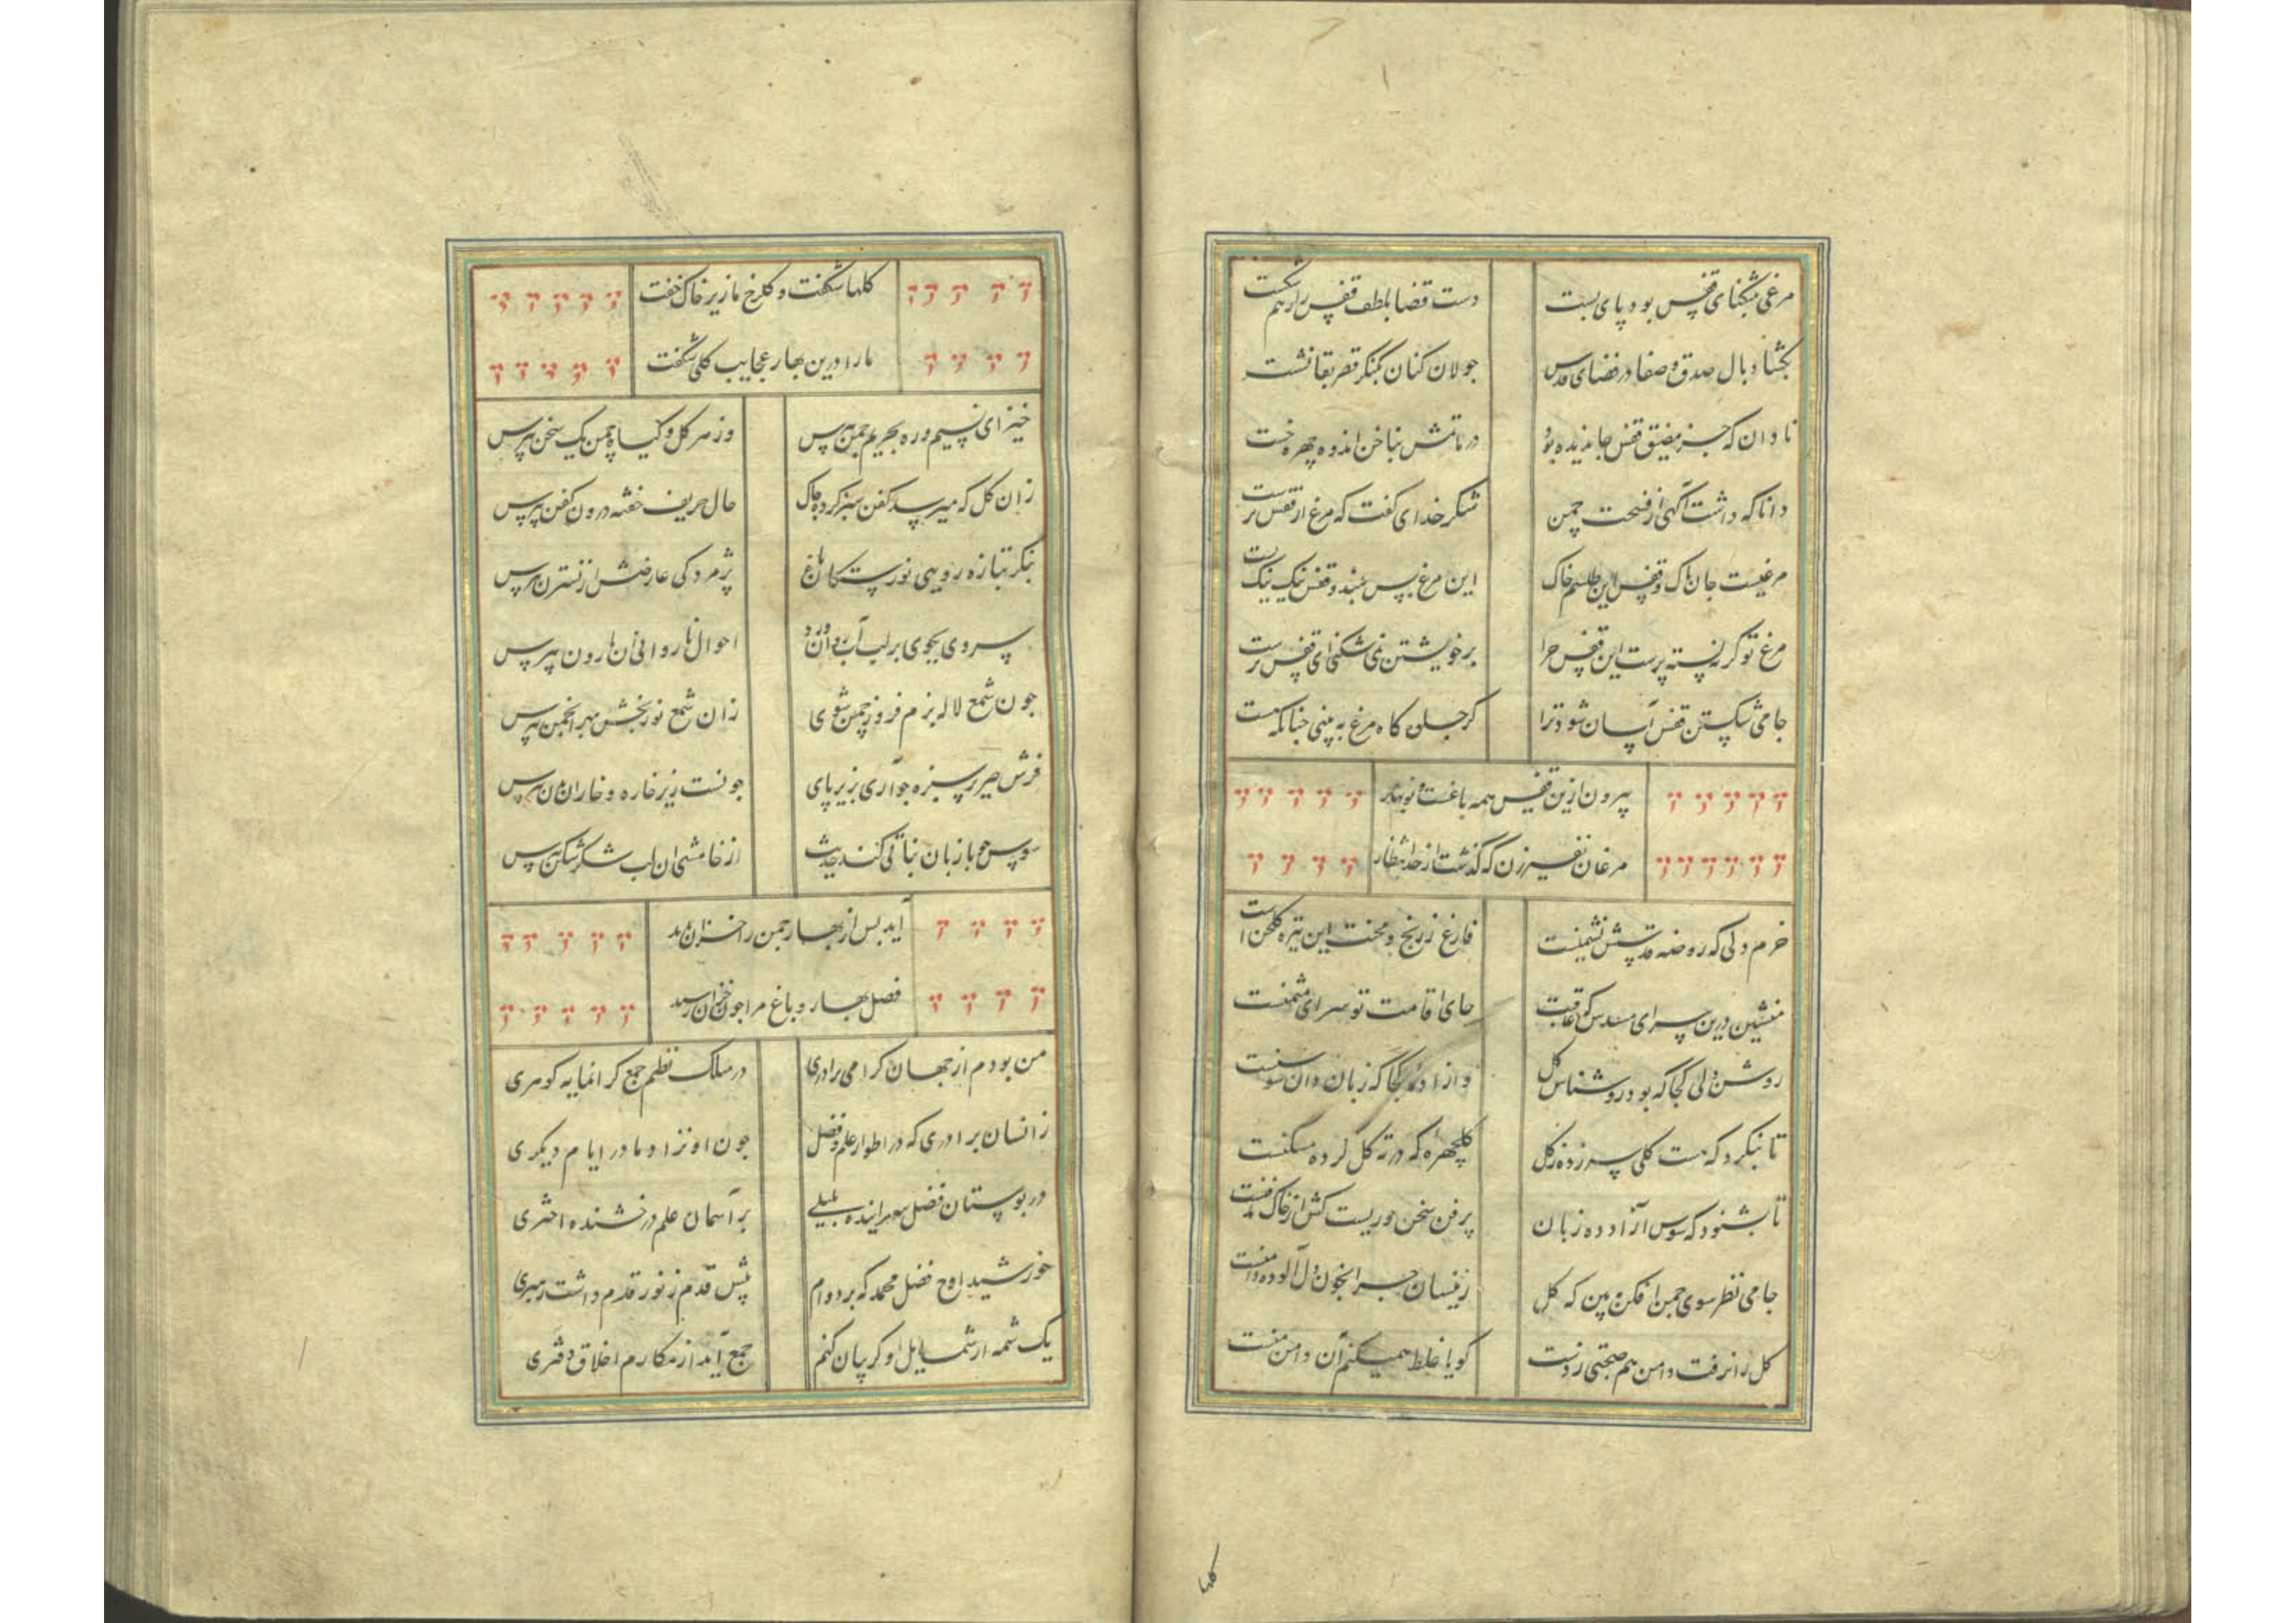 مرغی بتنگنای قفس بود پای بست دست قضا بلطف قفس را بهم شکست
بگشاد بال صدق و صفا در فضای قدس جولان کنان بکنگر قصر بقا نشست
نادان که جز مضیق قفس جا ندیده بود در ماتمش بناخن اندوه چهره خست
دانا که داشت آگهی از فسحت چمن شکر خدای گفت که مرغ از قفس برست
مرغیست جان پاک و قفس این طلسم خاک این مرغ بس بلند و قفس نیک نیک پست
مرغ تو گر نه بسته پرست این قفس چرا بر خویشتن نمی شکنی ای قفس پرست
جامی شکستن قفس آسان شود ترا گر جلوه گاه مرغ ببینی چنانکه هست
بیرون ازین قفس همه باغست و نوبهار
مرغان نفیر زن که گذشت از حد انتظار
خرم دلی که روضه قدسش نشیمنست فارغ ز رنج و محنت این تیره گلخن است
منشین درین سرای مسدس که عاقبت جای اقامت تو سرای مثمنست
روشن دلی کجا که بود روشناس گل و آزاده کجا که زبان دان سوسنست
تا بنگرد که هست گلی سر زده ز گل گلچهره که در ته گل کرده مسکنست
تا بشنود که سوسن آزاد ده زبان پر فن سخن وریست کش از خاک مدفنست
جامی نظر سوی چمن افکن ببین که گل زینسان چرا بخون دل آلوده دامنست
گل را نرفت دامن هم صحبتی ز دست گویا غلط همیکنم آن دامن منست
گلها شکفت و گلرخ ما زیر خاک خفت
ما را درین بهار عجایب گلی شکفت
خیز ای نسیم و ره بحریم چمن بپرس وز هر گل و گیاه چمن یک سخن بپرس
زان گل که میرسد کفن سبز کرده چاک حال حریف خفته درون کفن بپرس
بنگر بتازه رویی نورستگان باغ پژمردگی عارضش از نسترن بپرس
سروی بجوی بر لب آب روان و زو احوال ناروانی آن نارون بپرس
چون شمع لاله بزم فروز چمن شوی زان شمع نوربخش بهر انجمن بپرس
فرش حریر سبزه چو آری بزیر پای چونست زیر خاره و خار آن بدن بپرس
سوسن چو با زبان نباتی کند حدیث از خامشی آن لب شکر شکن بپرس
آید پس از بهار چمن را خزان پدید
فصل بهار و باغ مرا چون خزان رسید
من بودم از جهان گرامی برادری در سلک نظم جمع گرانمایه گوهری
زانسان برادری که در اطوار علم و فضل چون او نزاد مادر ایام دیگری
در بوستان فضل سراینده بلبلی بر آسمان علم درخشنده اختری
خورشید اوج فضل محمد که بر دوام پیش قدم ز نور قدم داشت رهبری
یک شمه از شمایل او گر بیان کنم جمع آید از مکارم اخلاق دفتری